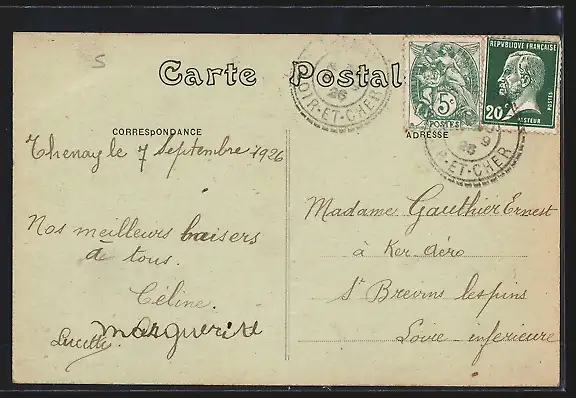 5
Carte Postale
REPVBLIQUE FRANÇAISE
5c
POSTES
20c
PASTEUR
POSTES
LOIR-ET-CHER
26
R-ET-CHER
9
26
CORRESPONDANCE
ADRESSE
Thenay le 7 Septembre 1926
Nos meilleurs baisers
à tous.
Céline
Lucette
Marguerite
Madame Gauthier Ernest
à Ker Aéro
St Brevins les pins
Loire inferieure